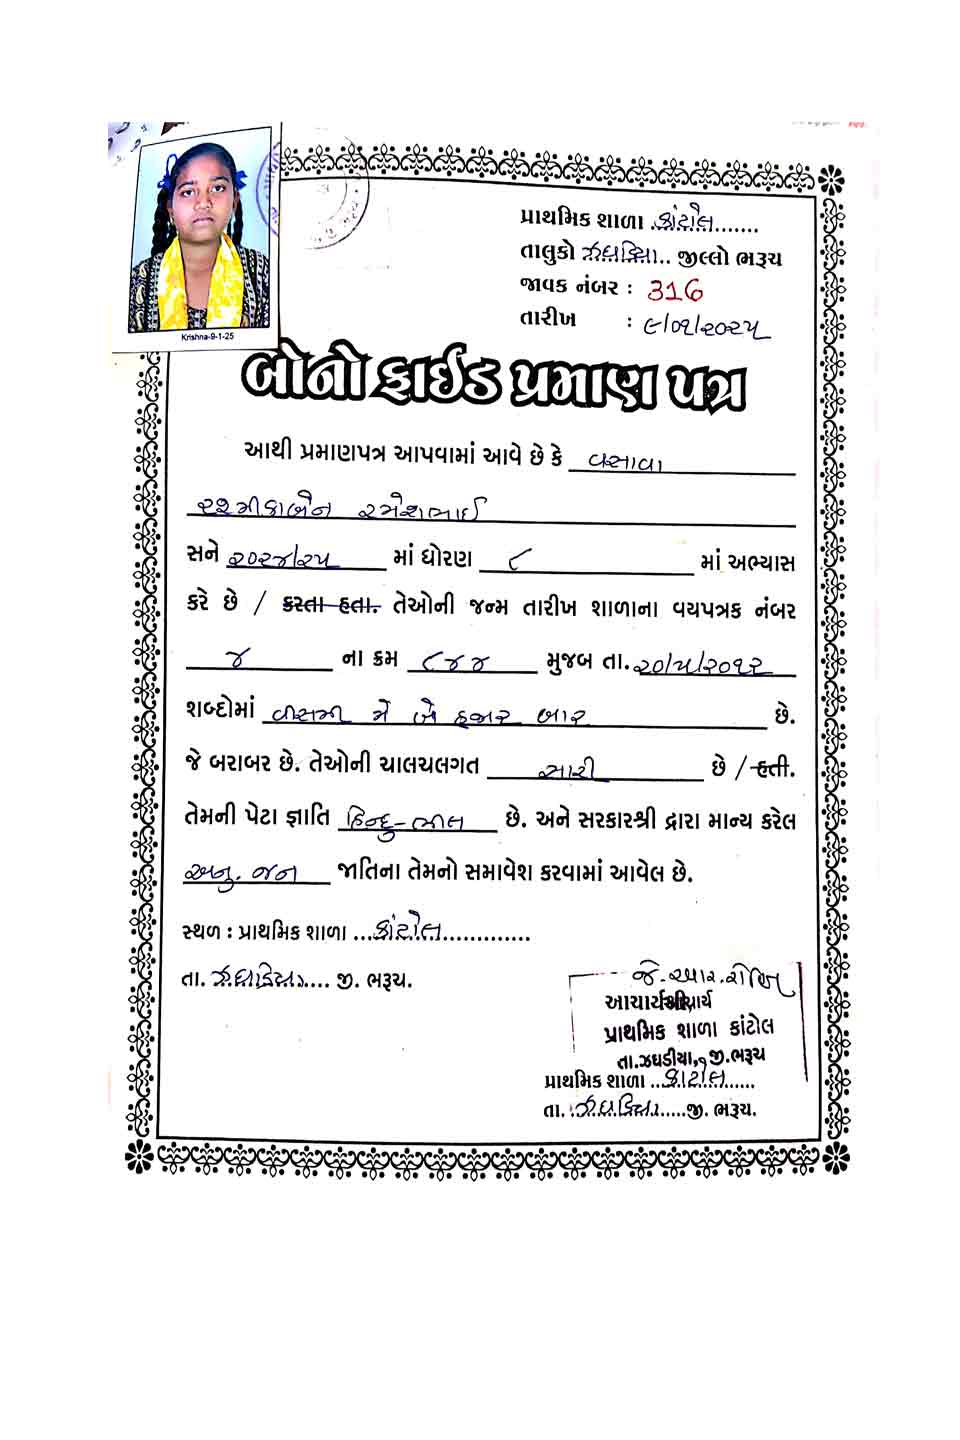 પ્રાથમિક શાળા .કાંટોલ.......
તાલુકો ઝઘડિયા.. જીલ્લો ભરૂચ
જાવક નંબર : 316
તારીખ : ૯/૦૧/૨૦૨૫
Krishna-9-1-25
બોનોફાઈડ પ્રમાણ પત્ર
આથી પ્રમાણપત્ર આપવામાં આવે છે કે વસાવા
રશ્મીકાબેન રમેશભાઈ
સને ૨૦૨૪/૨૫ માં ધોરણ ૮ માં અભ્યાસ
કરે છે / કરતા હતા. તેઓની જન્મ તારીખ શાળાના વયપત્રક નંબર
૪ ના ક્રમ ૮૪૪ મુજબ તા. ૨૦/૫/૨૦૧૨
શબ્દોમાં વીસમી મે બે હજાર બાર છે.
જે બરાબર છે. તેઓની ચાલચલગત સારી છે / હતી.
તેમની પેટા જ્ઞાતિ હિન્દુ-ભીલ છે. અને સરકારશ્રી દ્વારા માન્ય કરેલ
અનુ. જન જાતિના તેમનો સમાવેશ કરવામાં આવેલ છે.
સ્થળ : પ્રાથમિક શાળા ...કાંટોલ.............
તા. ઝઘડિયા.... જી. ભરૂચ.
જે. આર.
આચાર્યશ્રી
પ્રાથમિક શાળા કાંટોલ
તા.ઝઘડીયા, જી.ભરૂચ
પ્રાથમિક શાળા ..કાંટોલ......
તા. ઝઘડિયા.....જી. ભરૂચ.